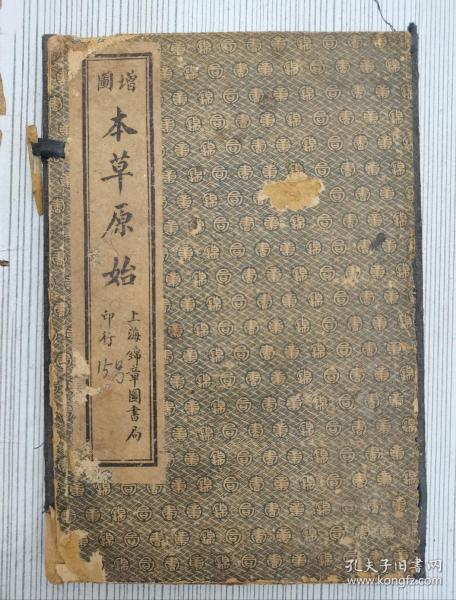 增圖
本草原始
上海錦章圖書局
印行
15号
孔夫子旧书网
www.kongfz.com